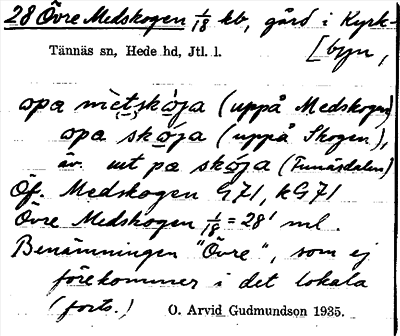 28 Övre Medskogen 1/18 kb, gård i Kyrk-
[byn,
Tännäs sn, Hede hd, Jtl. l.
opa mètskója (uppå Medskogen)
opa skója (uppå Skogen),
äv. ut pa skója (Funäsdalen)
Öf. Medskogen G71, kG71
Övre Medskogen 1/18 = 28¹ ml.
Benämningen "Övre", som ej
förekommer i det lokala
(forts.) O. Arvid Gudmundson 1935.